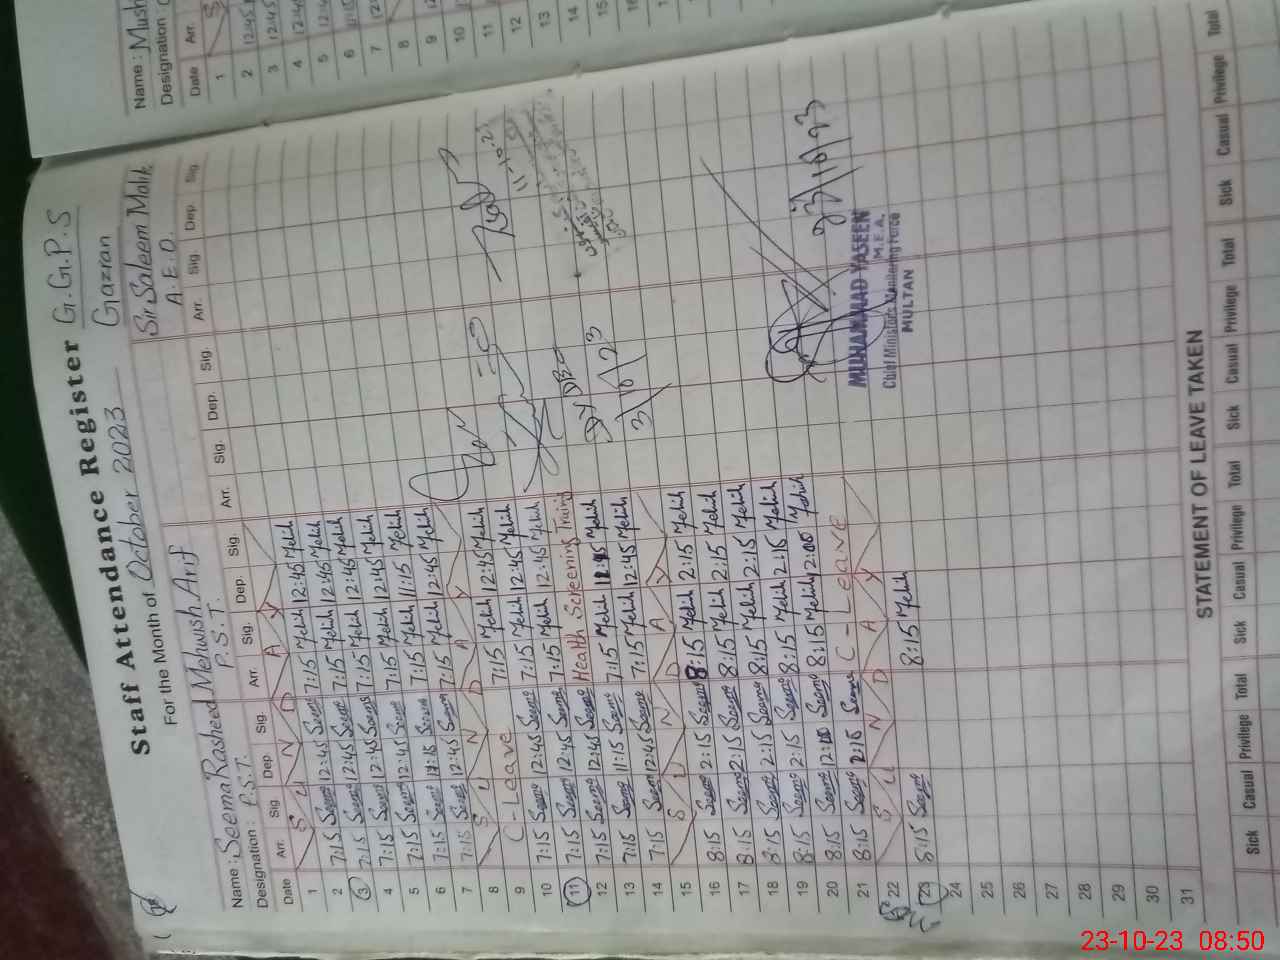 Staff Attendance Register G.G.P.S
For the Month of October 2023 Gazran
Name: Seema Rasheed Mehwish Arif Sir Saleem Malik
Designation: P.S.T. P.S.T. A.E.O.
Date Arr. Sig Dep Sig. Arr. Sig. Dep. Sig. Arr. Sig. Dep. Sig. Arr. Sig. Dep. Sig.
1 S U N D A Y
2 7:15 Seema 12:45 Seema 7:15 Mehwish 12:45 Mehwish
3 7:15 Seema 12:45 Seema 7:15 Mehwish 12:45 Mehwish
4 7:15 Seema 12:45 Seema 7:15 Mehwish 12:45 Mehwish
5 7:15 Seema 12:45 Seema 7:15 Mehwish 12:45 Mehwish
6 7:15 Seema 7:15 Mehwish 11:15 Mehwish
7 7:15 Seema 12:45 Seema 7:15 Mehwish 12:45 Mehwish
8 S U N D A Y
9 C-Leave 7:15 Mehwish 12:45 Mehwish
10 7:15 Seema 12:45 Seema 7:15 Mehwish 12:45 Mehwish
11 7:15 Seema 12:45 Seema 7:15 Mehwish 12:45 Mehwish
12 7:15 Seema 12:45 Seema Health Screening Traing
13 7:15 Seema 11:15 Seema 7:15 Mehwish Mehwish
14 7:15 Seema 12:45 Seema 7:15 Mehwish 12:45 Mehwish
15 S U N D A Y
16 8:15 Seema 2:15 Seema 8:15 Mehwish 2:15 Mehwish
17 8:15 Seema 2:15 Seema 8:15 Mehwish 2:15 Mehwish
18 8:15 Seema 2:15 Seema 8:15 Mehwish 2:15 Mehwish
19 8:15 Seema 2:15 Seema 8:15 Mehwish 2:15 Mehwish
20 8:15 Seema Seema 8:15 Mehwish 2:00 Mehwish
21 8:15 Seema 2:15 Seema C-Leave
22 S U N D A Y
23 8:15 Seema 8:15 Mehwish
24
25
26
27
28
29
30
31
11-10-23
Dy DEO
3/10/23
23/10/23
MUHAMMAD YASEEN
M.E.A.
Chief Minister's Monitoring Force
MULTAN
STATEMENT OF LEAVE TAKEN
Sick Casual Privilege Total Sick Casual Privilege Total Sick Casual Privilege Total Sick Casual Privilege Total
Name: Mush
Designation:
Date Arr.
1 S
2 12:45
3 12:45
4 12:45
5
6
7
8
9
10
11
12
13
14
15
16
23-10-23 08:50